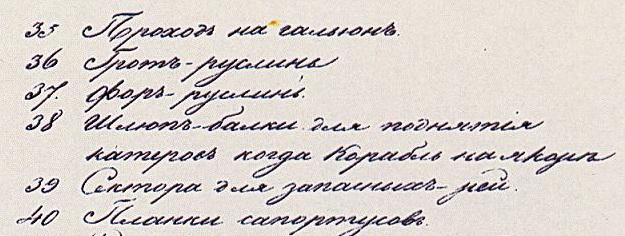 35 Проходъ на гальюнъ.
36 Гротъ-руслинь
37. Форъ-руслинь.
38 Шлюпъ-балки для поднятія
катеровъ когда Корабль на якорѣ
39 Сектора для запасныхъ-рей.
40 Планки сапортусовъ.